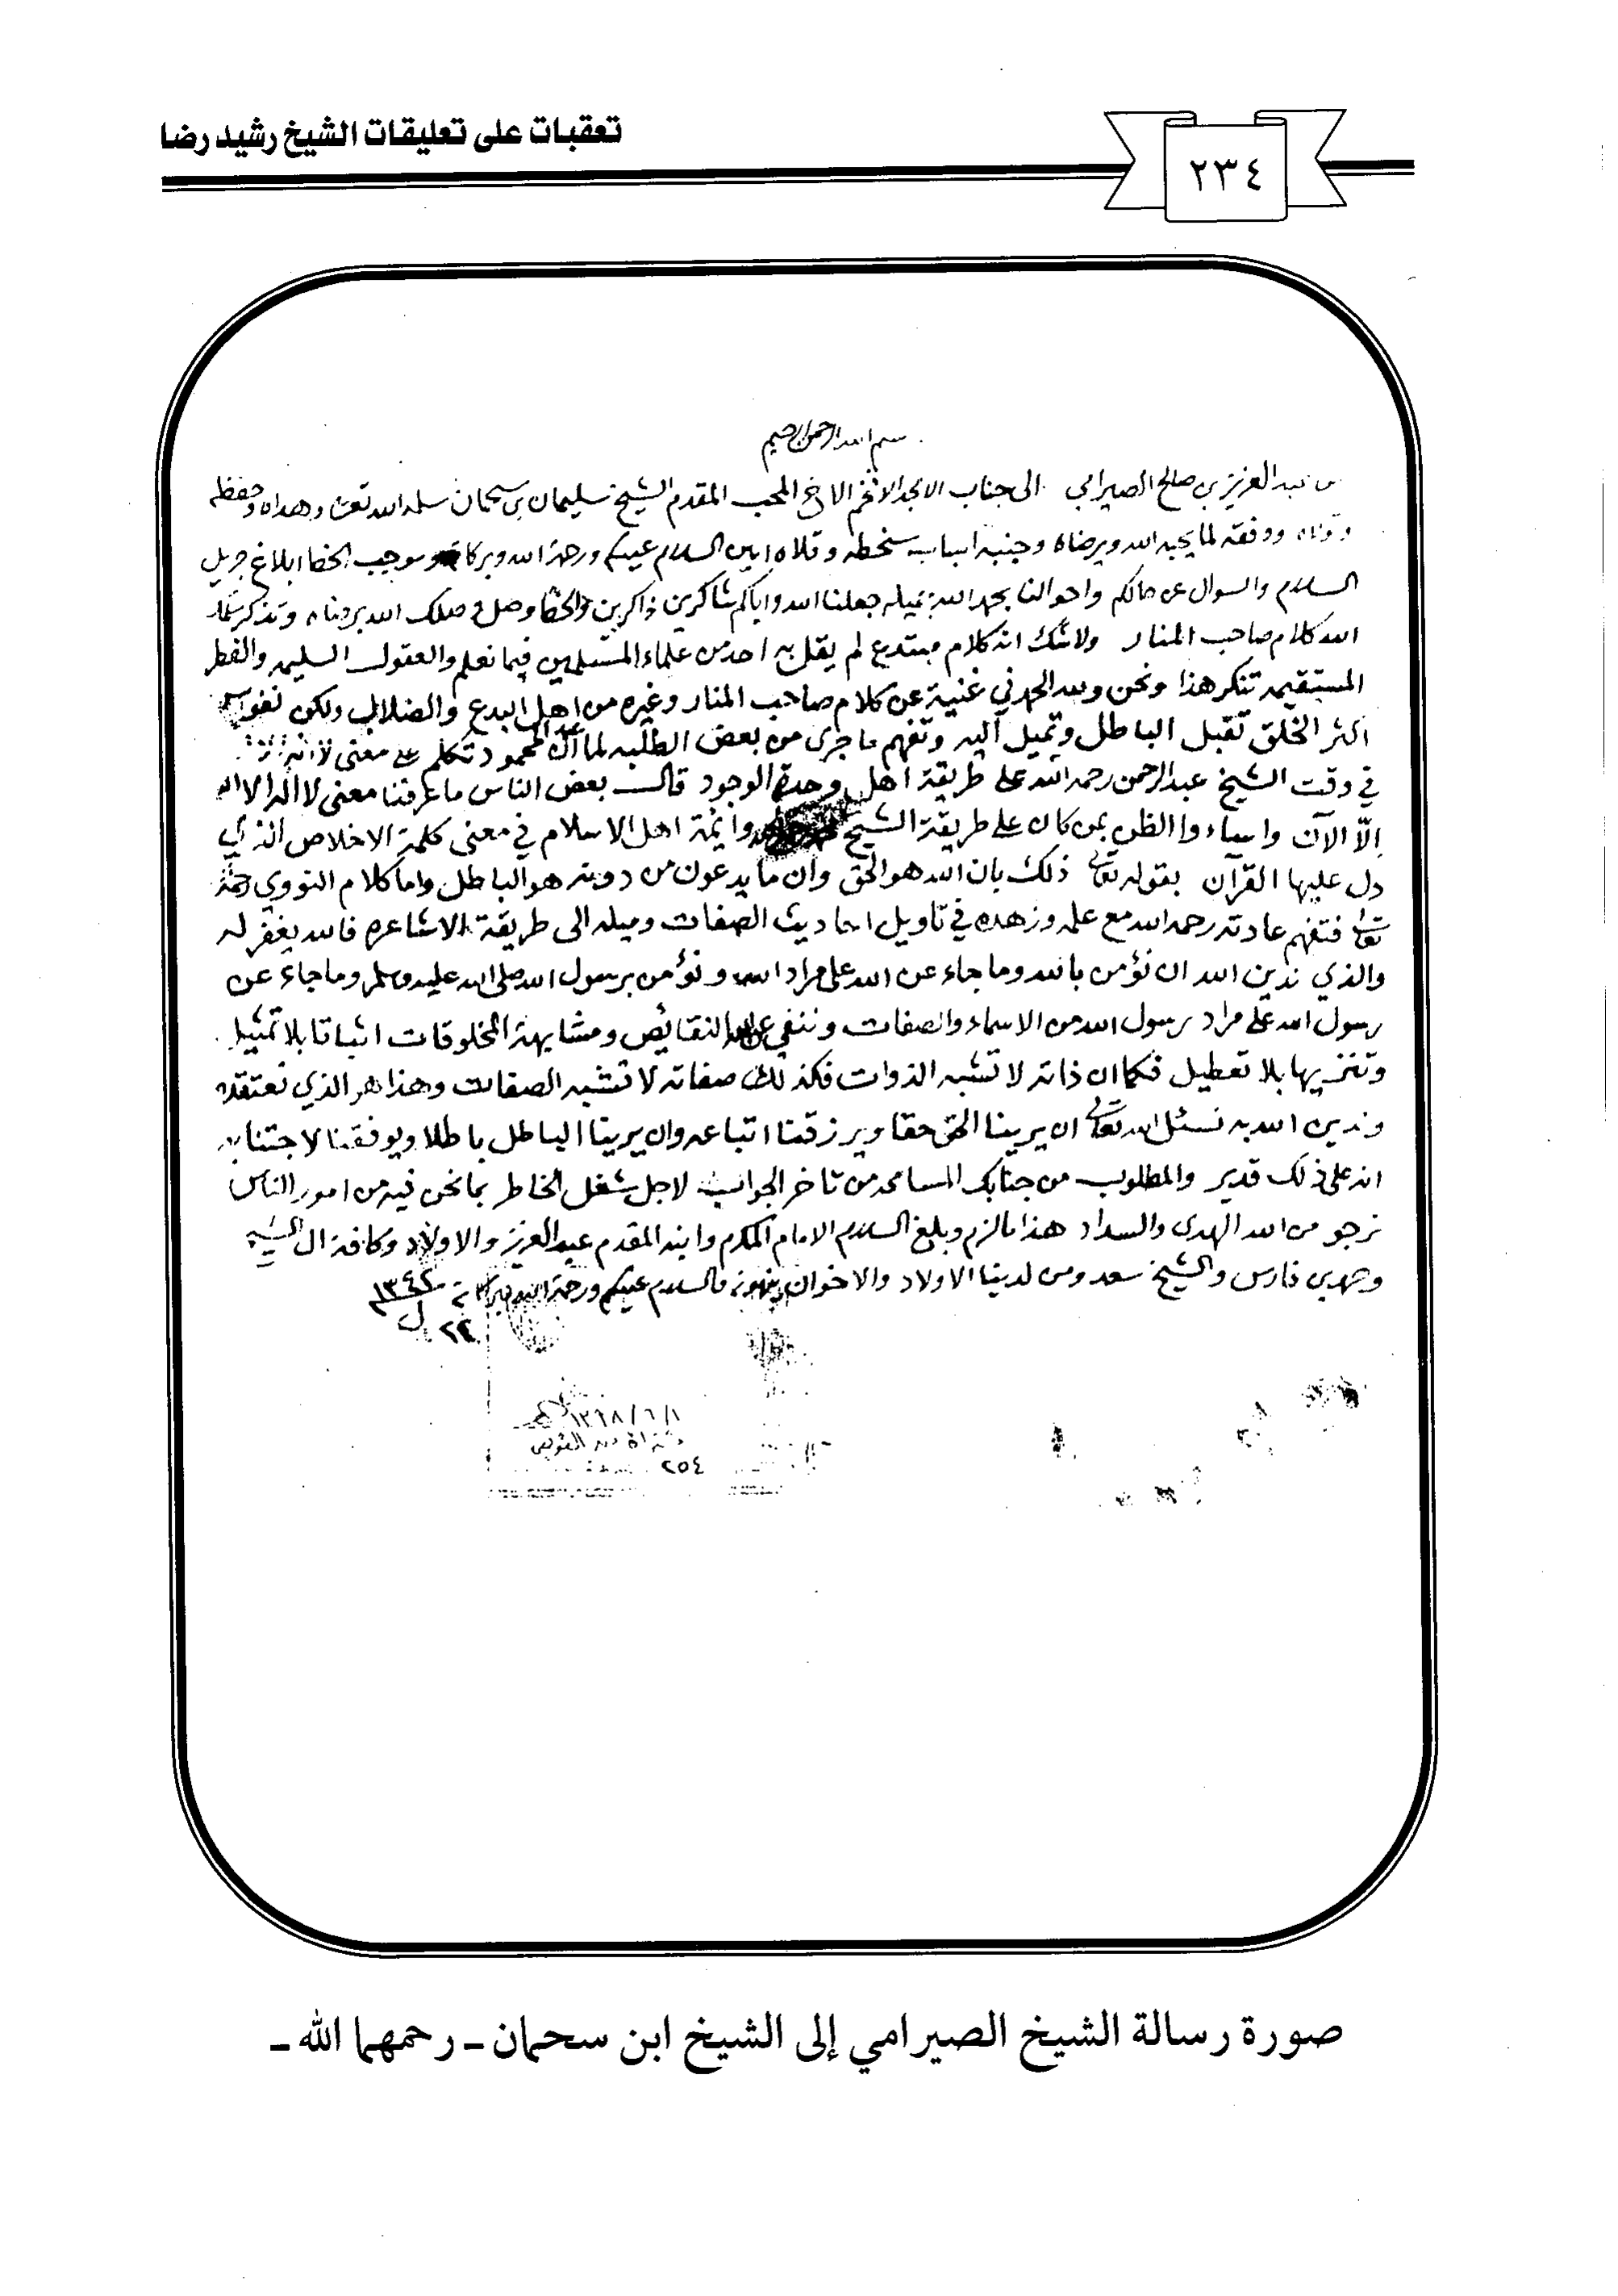 تعقبات على تعليقات الشيخ رشيد رضا
٢٣٤
بسم الله الرحمن الرحيم
من عبد العزيز بن صالح الصيرامي الى جناب الامجد الافخم الاخ المحب المقدم الشيخ سليمان بن سحمان سلمه الله تعالى وهداه وحفظه
ووفقه لما يحبه الله ويرضاه وجنبه اسباب سخطه وقلاه امين السلام عليكم ورحمة الله وبركاته وموجب الخط ابلاغ جزيل
السلام والسوال عن حالكم واحوالنا بحمد الله جميله جعلنا الله واياكم شاكرين ذاكرين والخط وصل وصلك الله برضاه وتذكر سلمك
الله كلام صاحب المنار ولا شك انه كلام مبتدع لم يقل به احد من علماء المسلمين فيما نعلم والعقول السليمه والفطر
المستقيمه تنكر هذا ونحن ولله الحمد في غنية عن كلام صاحب المنار وغيره من اهل البدع والضلال ولكن نفوس
اكثر الخلق تقبل الباطل وتميل اليه وتفهم ما جرى من بعض الطلبه لما ان المحمود تكلم على معنى
في وقت الشيخ عبد الرحمن رحمه الله على طريقة اهل وحدة الوجود قال بعض الناس ما عرفنا معنى لا اله الا الله
الّا الآن واساءوا الظن بمن كان على طريقة الشيخ وائمة اهل الاسلام في معنى كلمة الاخلاص الذي
دل عليها القرآن بقوله تعالى ذلك بان الله هو الحق وان ما يدعون من دونه هو الباطل واما كلام النووي رحمه
تعالى فتفهم عادته رحمه الله مع علمه وزهده في تاويل احاديث الصفات وميله الى طريقة الاشاعره فالله يغفر له
والذي ندين الله ان نؤمن بالله وما جاء عن الله على مراد الله ونؤمن برسول الله صلى الله عليه وسلم وما جاء عن
رسول الله على مراد رسول الله من الاسماء والصفات وننفي عن الله النقائص ومشابهة المخلوقات اثباتا بلا تمثيل
وتنزيها بلا تعطيل فكما ان ذاته لا تشبه الذوات فكذلك صفاته لا تشبه الصفات وهذا هو الذي نعتقده
وندين الله به نسئل الله تعالى ان يرينا الحق حقا ويرزقنا اتباعه وان يرينا الباطل باطلا ويوفقنا لاجتنابه
انه على ذلك قدير والمطلوب من جنابك المسامحه من تاخر الجواب لاجل شغل الخاطر بما نحن فيه من امور الناس
نرجو من الله الهدى والسداد هذا ما لزم وبلغ السلام الامام المكرم وابنه المقدم عبد العزيز والاولاد وكافة ال الشيخ
وحمد بن فارس والشيخ سعد ومن لدينا الاولاد والاخوان ينهونه والسلام عليكم ورحمة الله وبركاته ١٣٤٢
٢٢ ل
١٣٩٨/٦/١
٢٥٤
صورة رسالة الشيخ الصيرامي إلى الشيخ ابن سحمان ـ رحمهما الله ـ